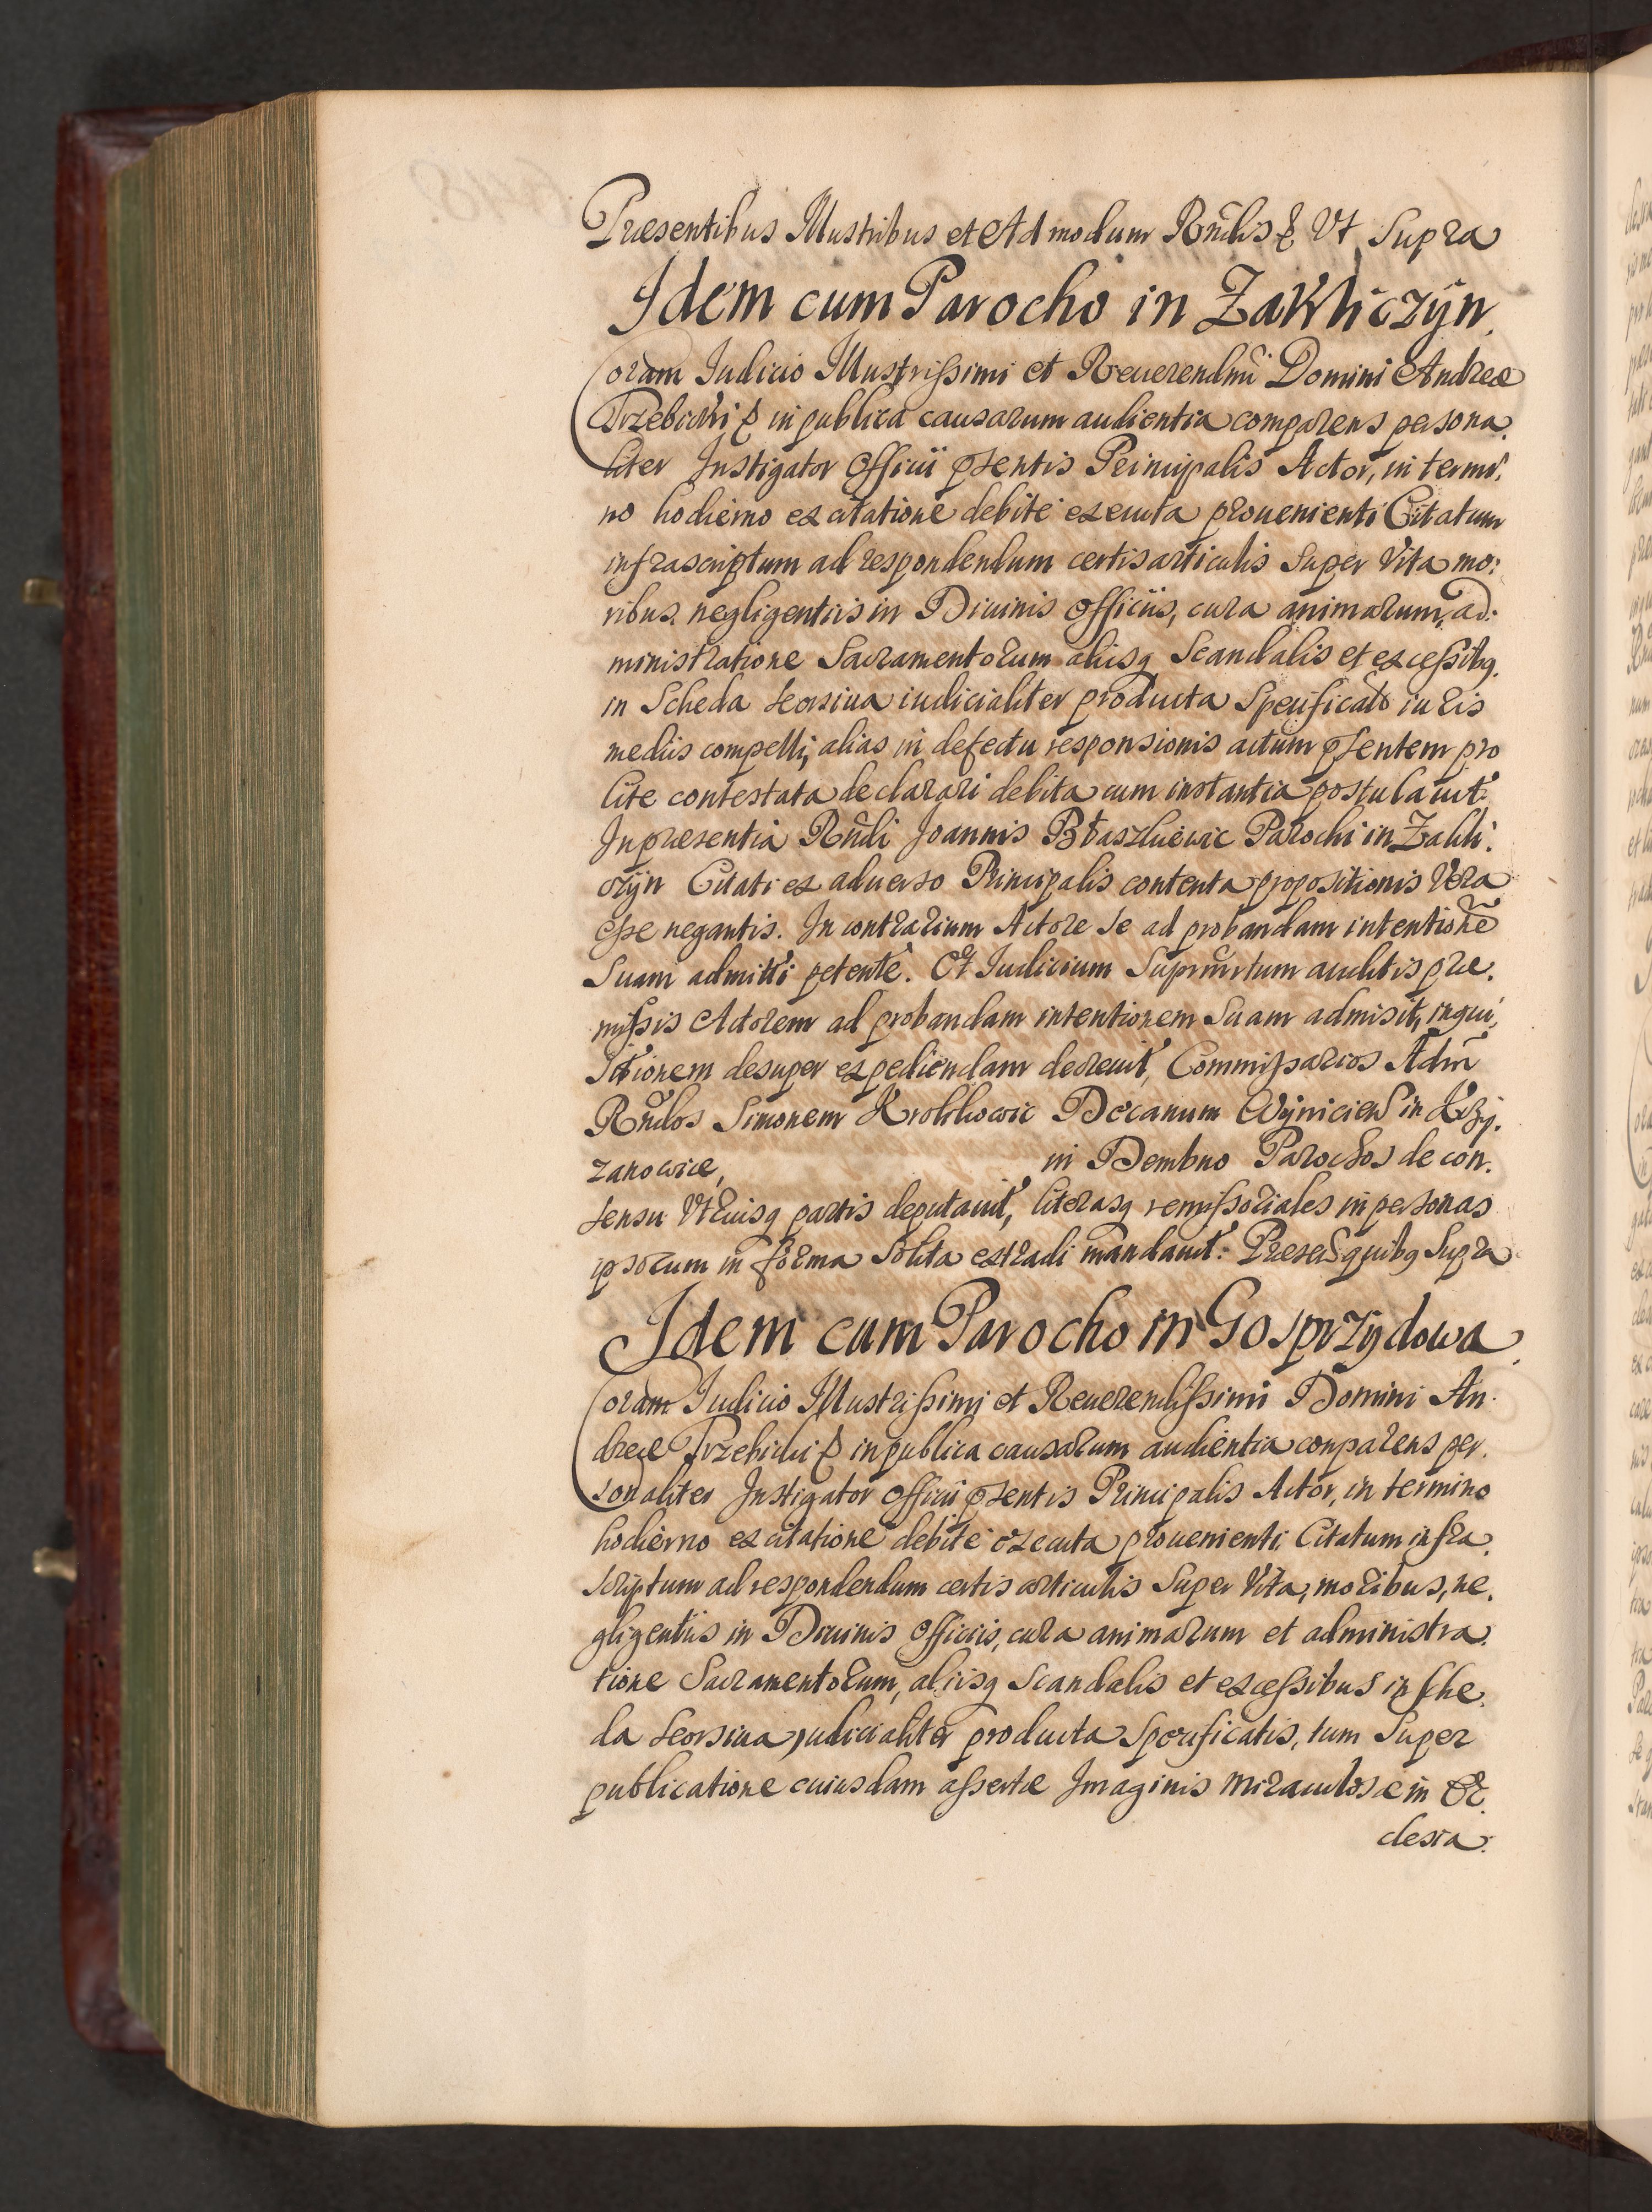 Praesentibus Illustribus et Admodum Rndis & Vt Supra
Idem cum Parocho in Zakliczÿn.
Coram Iudicio Illustrissimi et Reuerendmi Domini Andreae
Trzebicki & in publica causarum audientia comparens persona.
liter Instigator Officii pṡentis Principalis Actor, in termi.
no hodierno ex citatione debite executa prouenienti Citatum
infrascriptum ad respondendum certis articulis Super Vita mo:
ribus. negligentiis in Diuinis officiis, cura animarum, ad.
ministratione Sacramentorum aliisq Scandalis et excessibq.
in Scheda seorsiua iudicialiter producta Specificatis iuris
mediis compelli, alias in defectu responsionis actum pṡentem pro
lite contestata declarari debita cum instantia postulauit.
In praesentia Rndi Joannis Błaszkiewic Parochi in Zakli.
czÿn Citati ex aduerso Principalis contenta propositionis Vera
esse negantis. In contrarium Actore se ad probandam intentione
Suam admitti petente. Et Iudicium Suprascriptum auditis prae.
missis Actorem ad probandam intentionem Suam admisit, inqui,
sitionem desuper expediendam decreuit, Commissarios Adm
Rndos Simonem Krolikowic Decanum Woÿniciens in Krzy.
zanowice, in Dembno Parochos de con.
sensu Vtriusq partis deputauit, literasq remissoriales in personas
ipsorum in forma Solita extradi mandauit. Praesentq quibq Supra
Idem cum Parocho in Gosprzydowa.
Coram Iudicio Illustrissimi et Reuerendissimi Domini An.
dreae Trzebicki & in publica causarum audientia comparens per.
sonaliter Instigator officii pṡentis Principalis Actor, in termino
hodierno ex citatione debite executa prouenienti Citatum infra.
scriptum ad respondendum certis articulis Super Vita, moribus, ne.
gligentiis in Diuinis officiis, cura animarum et administra.
tione Sacramentorum, aliisq Scandalis et excessibus in Sche.
da seorsiua judicialiter producta Specificatis, tum Super
publicatione cuiusdam assertae Imaginis miraculosae in Ec.
clesia.